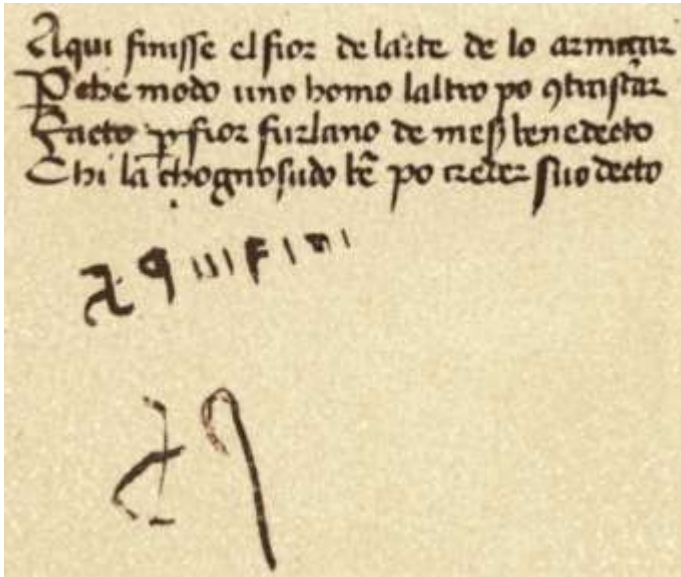 Aqui finisse el fior de larte de lo armiçar
P che modo uno homo laltro po ꝯtrastar
Facto ꝑ fior furlano de mes benedecto
Chi la chognosudo bē po creder suo decto
a q ui f i ni
a q